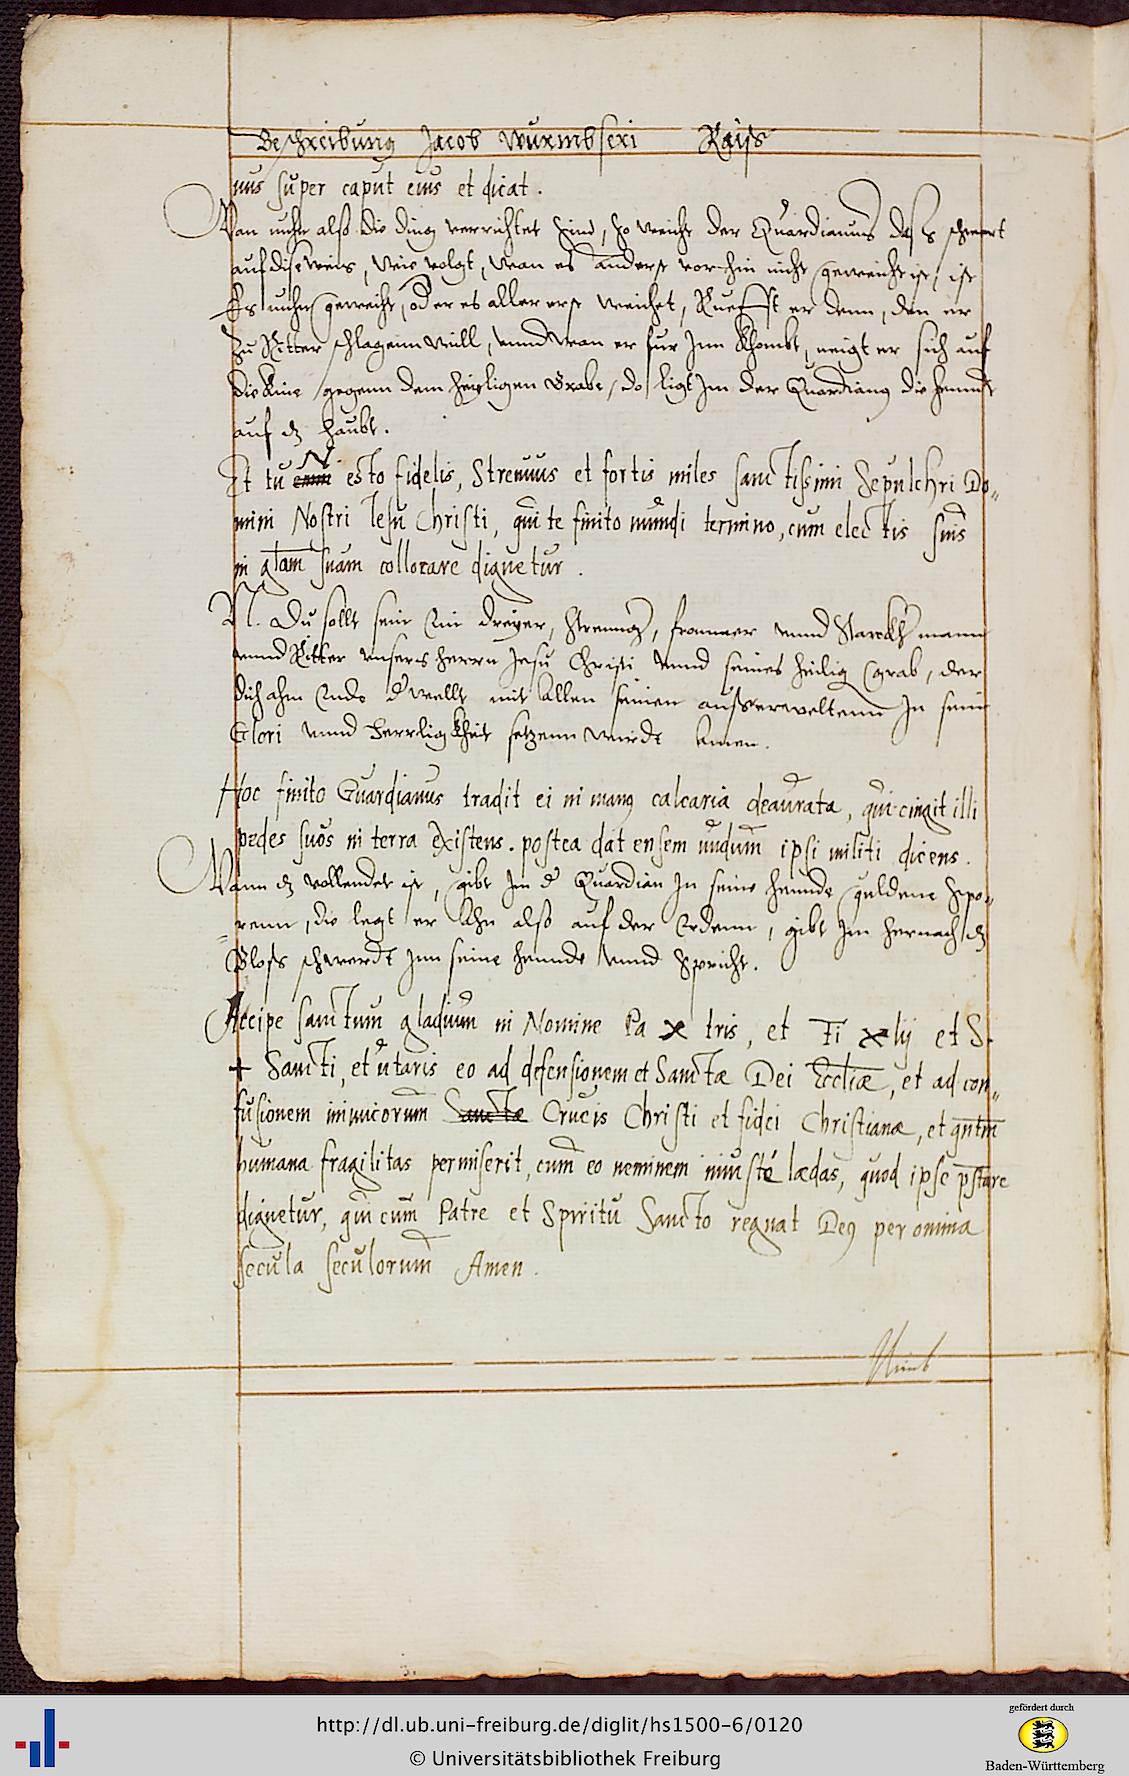 Beschreibung Jacob Wurmbseri Raijß
nus super caput eius et dicat.
Wan nuhn alß die ding verrichtet sind, so weicht der Quardianus daß schwert
auf dise weis, wie volgt, wan es anderst vorhin nicht geweicht ist, ist
Es nuhn geweicht, oder es aller erst weichet, Ruefft er denn, den er
Zu Ritter schlagenn will, unnd wan er fur Inn khombt, neigt er sich auf
die knie gegenn dem heyligen Grabe, do ligt Im der Quardianus die hennd
auf dz haubt.
Et tu N esto fidelis, Strenuus et fortis miles sanctissimi Sepulchri Do„
mini Nostri Iesu Christi, qui te finito mundi termino, cum electis suis
in gl̄am suam collocare dignetur.
N. Du sollt sein Ein dreyer, Strennger, frommer unnd Starckh mann
unnd Ritter unsers herrn Jesu Christi unnd seines heilig Grab, der
dich ahm Ende der wellt mit allen seinen außerweltenn In sein
Glori unnd herrligkheit setzenn wirdt Amen.
Hoc finito Guardianus tradit ei in manus calcaria deaurata, qui cingit illi
pedes suos in terra Existens. postea dat ensem nudum ipsi militi dicens.
Wann dz vollendet ist, gibt Im der Quardian In seine hennde guldene Spo„
renn, die legt er Ihn also auf der Erdenn, gibt Im hernach dz
Bloß schwerdt Inn seine hennde unnd Spricht.
Accipe sanctum gladium in Nomine Pa x tris, et Fi x lij et S.
+ Sancti, et utaris eo ad defensionem et Sanctæ Dei Eccl̄iæ, et ad con„
fusionem inimicorum Sanctæ Crucis Christi et fidei Christianæ, et qn̄tm
humana fragilitas permiserit, cum eo neminem iniusté lædas, quod ipse p̄stare
dignetur, qui cum Patre et Spiritu Sancto regnat Deus per omnia
secula seculorum Amen.
Nimb
http://dl.ub.uni-freiburg.de/diglit/hs1500-6/0120
© Universitätsbibliothek Freiburg
gefördert durch
Baden-Württemberg